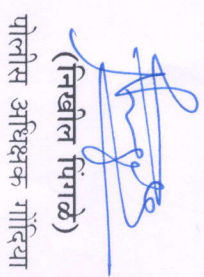 (निखील पिंगळे)
पोलीस अधिक्षक गोंदिया